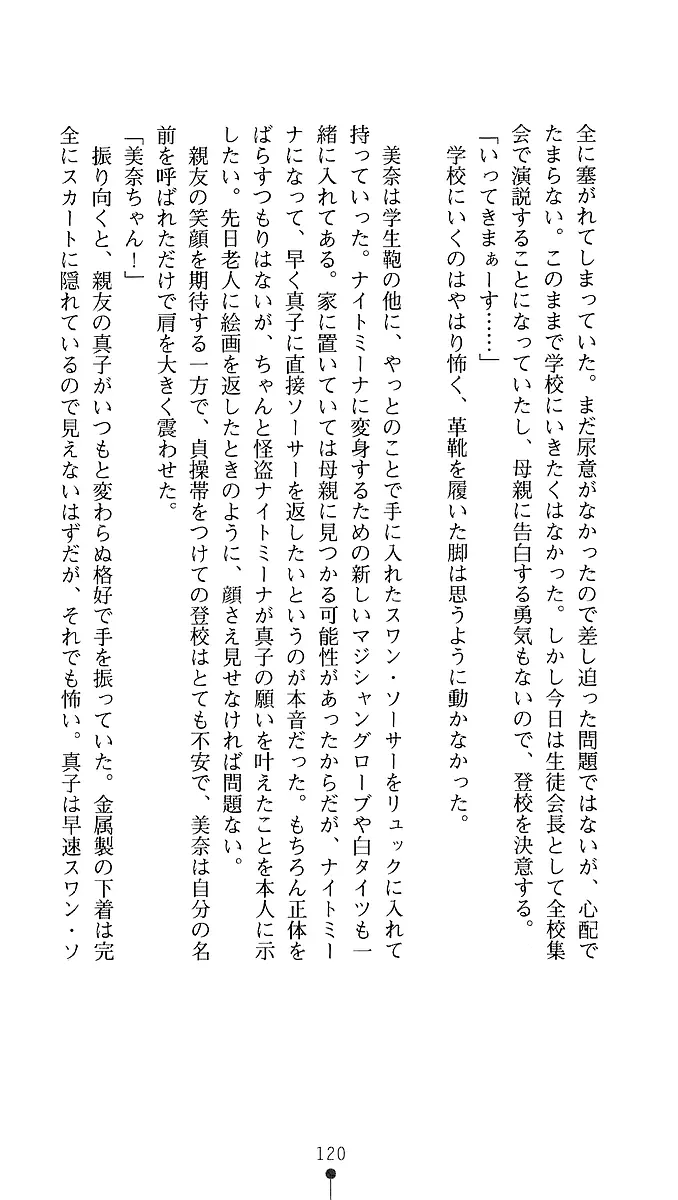 全に塞がれてしまっていた。まだ尿意がなかったので差し迫った問題ではないが、心配で
たまらない。このままで学校にいきたくはなかった。しかし今日は生徒会長として全校集
会で演説することになっていたし、母親に告白する勇気もないので、登校を決意する。
「いってきまぁーす……」
学校にいくのはやはり怖く、革靴を履いた脚は思うように動かなかった。
美奈は学生鞄の他に、やっとのことで手に入れたスワン・ソーサーをリュックに入れて
持っていった。ナイトミーナに変身するための新しいマジシャングローブや白タイツも一
緒に入れてある。家に置いていては母親に見つかる可能性があったからだが、ナイトミー
ナになって、早く真子に直接ソーサーを返したいというのが本音だった。もちろん正体を
ばらすつもりはないが、ちゃんと怪盗ナイトミーナが真子の願いを叶えたことを本人に示
したい。先日老人に絵画を返したときのように、顔さえ見せなければ問題ない。
親友の笑顔を期待する一方で、貞操帯をつけての登校はとても不安で、美奈は自分の名
前を呼ばれただけで肩を大きく震わせた。
「美奈ちゃん！」
振り向くと、親友の真子がいつもと変わらぬ格好で手を振っていた。金属製の下着は完
全にスカートに隠れているので見えないはずだが、それでも怖い。真子は早速スワン・ソ
120